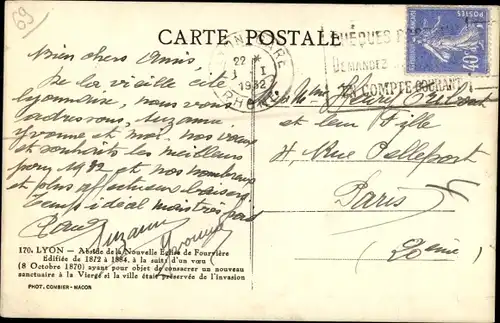 69
CARTE POSTALE
LYON GARE
22
1 I
1932
RHÔNE
CHÈQUES P
DEMANDEZ
UN COMPTE COURANT
POSTES
40c
Bien chers Amis,
De la vieille cité
lyonnaise, nous vous
adressons, Suzanne
Yvonne et moi nos vœux
et souhaits les meilleurs
pour 1932 et nos nombreux
et plus affectueux baisers
Temps idéal mais très froid
Suzanne
Yvonne
et leur Fille
4, Rue Pelleport
Paris
4
170. LYON — Abside de la Nouvelle Eglise de Fourvière
Edifiée de 1872 à 1884, à la suite d'un vœu
(8 Octobre 1870) ayant pour objet de consacrer un nouveau
sanctuaire à la Vierge si la ville était préservée de l'invasion
PHOT. COMBIER - MACON